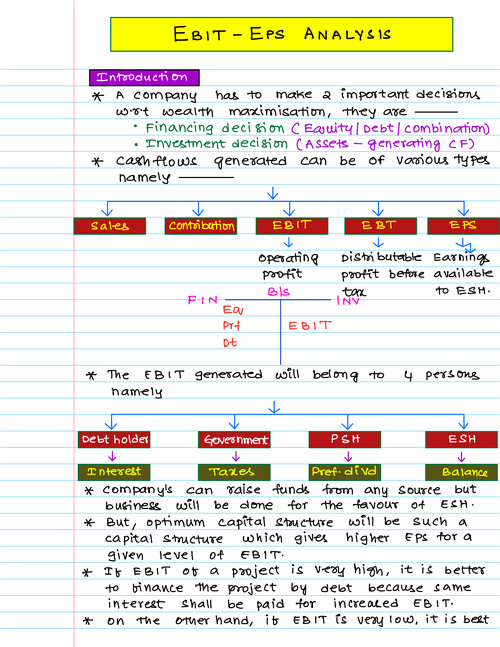 EBIT - EPS ANALYSIS
Introduction
* A company has to make 2 important decisions
w.r.t wealth maximisation, they are ———
• Financing decision (Equity/Debt/combination)
• Investment decision (Assets - generating CF)
* Cashflows generated can be of various types
namely ———
Sales Contribution EBIT EBT EPS
Operating Distributable Earnings
profit profit before available
tax to ESH.
B/s
FIN INV
Eq
Prf EBIT
Dt
* The EBIT generated will belong to 4 persons
namely
Debt holder Government PSH ESH
Interest Taxes Pref. divd Balance
* Company's can raise funds from any source but
business will be done for the favour of ESH.
* But, optimum capital structure will be such a
capital structure which gives higher EPS for a
given level of EBIT.
* If EBIT of a project is very high, it is better
to finance the project by debt because same
interest shall be paid for increased EBIT.
* On the other hand, if EBIT is very low, it is best